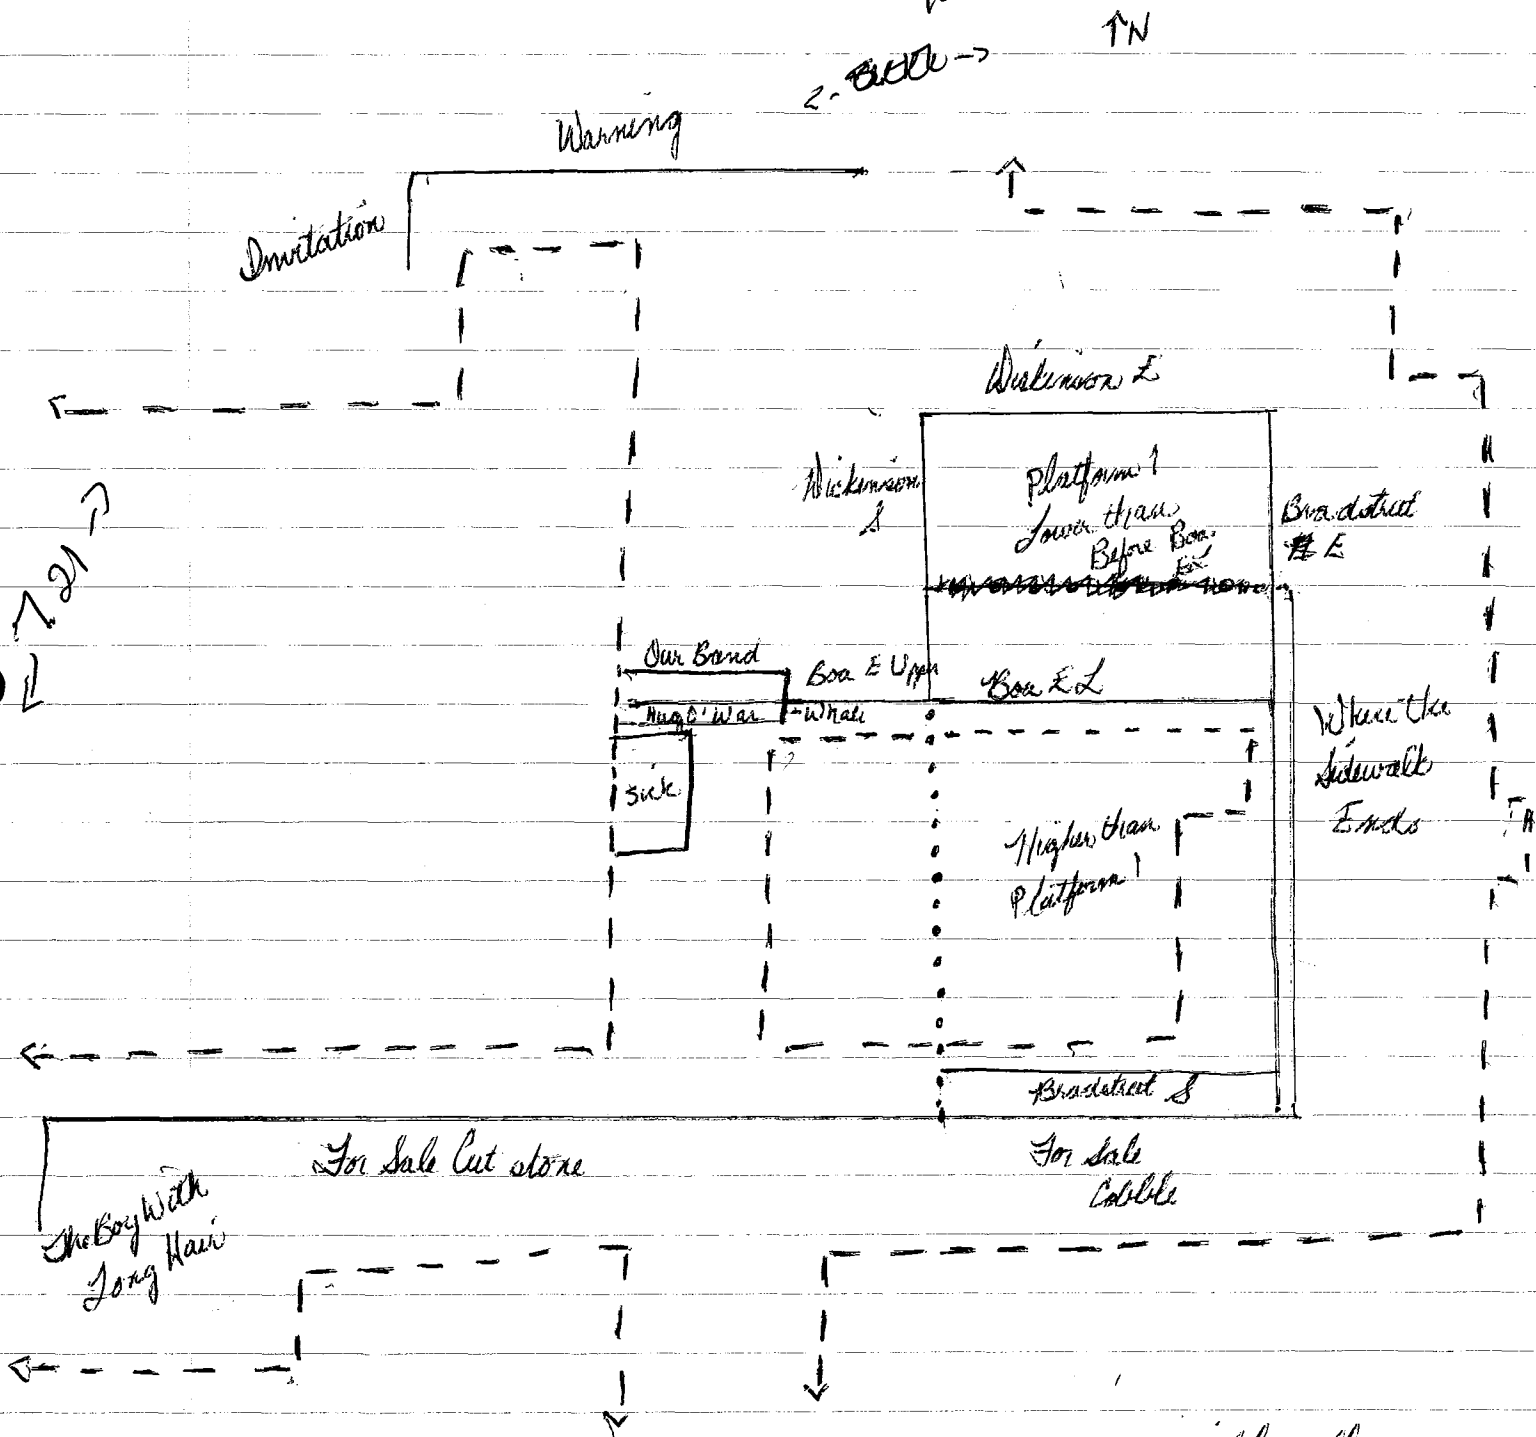 ↑N
2. →
Warning
Invitation
Dickinson E
Dickinson
S
Platform 1
Lower than
Before Boa.
Ex
Bradstreet
E
7 21
Our Band
Boa E Upper
Boa E L
Hug O' War
-Whale
Where the
Sidewalk
Ends
Sick
Higher than
Platform 1
Bradstreet S
For Sale Cut stone
For Sale
Cobble
The Boy With
Long Hair